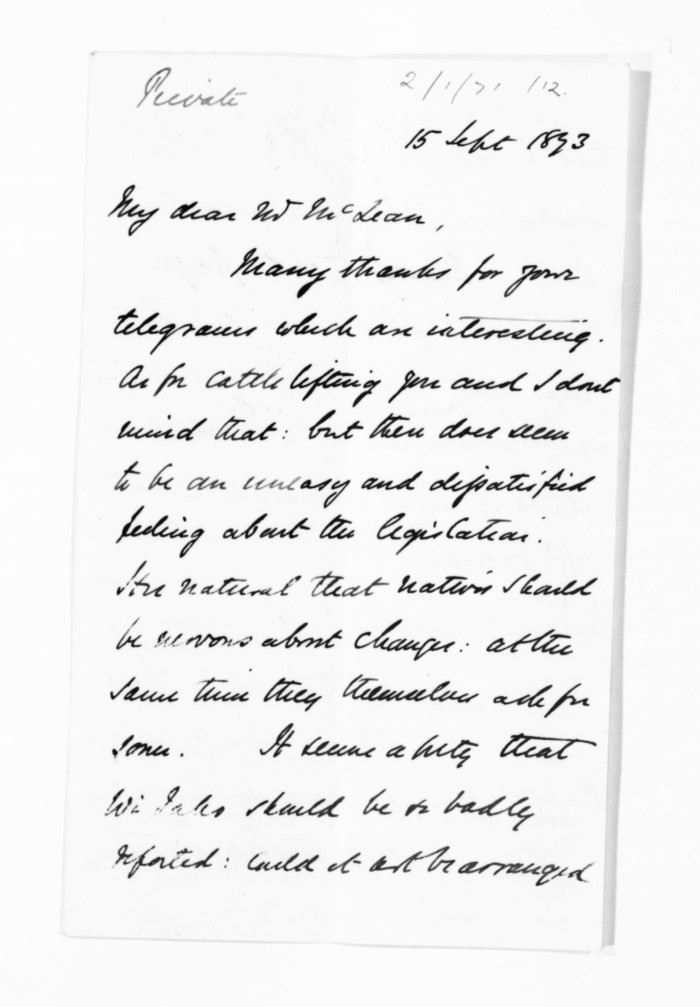 Private
2/1/71 /12.
15 Sept 1873
My dear Mr McLean,
Many thanks for your
telegrams which are interesting.
As for cattle lifting you and I dont
mind that: but there does seem
to be an uneasy and dissatisfied
feeling about the legislation.
It is natural that natives should
be nervous about changes: at the
same time they themselves ask for
some. It seems a pity that
Wi Tako should be so badly
reported: Could it not be arranged